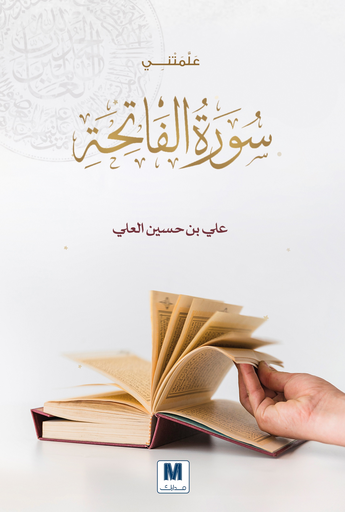 عَلَّمَتْنـــي
سُورَةُ الفَاتِحَةِ
علي بن حسين العلي
M
مدارك